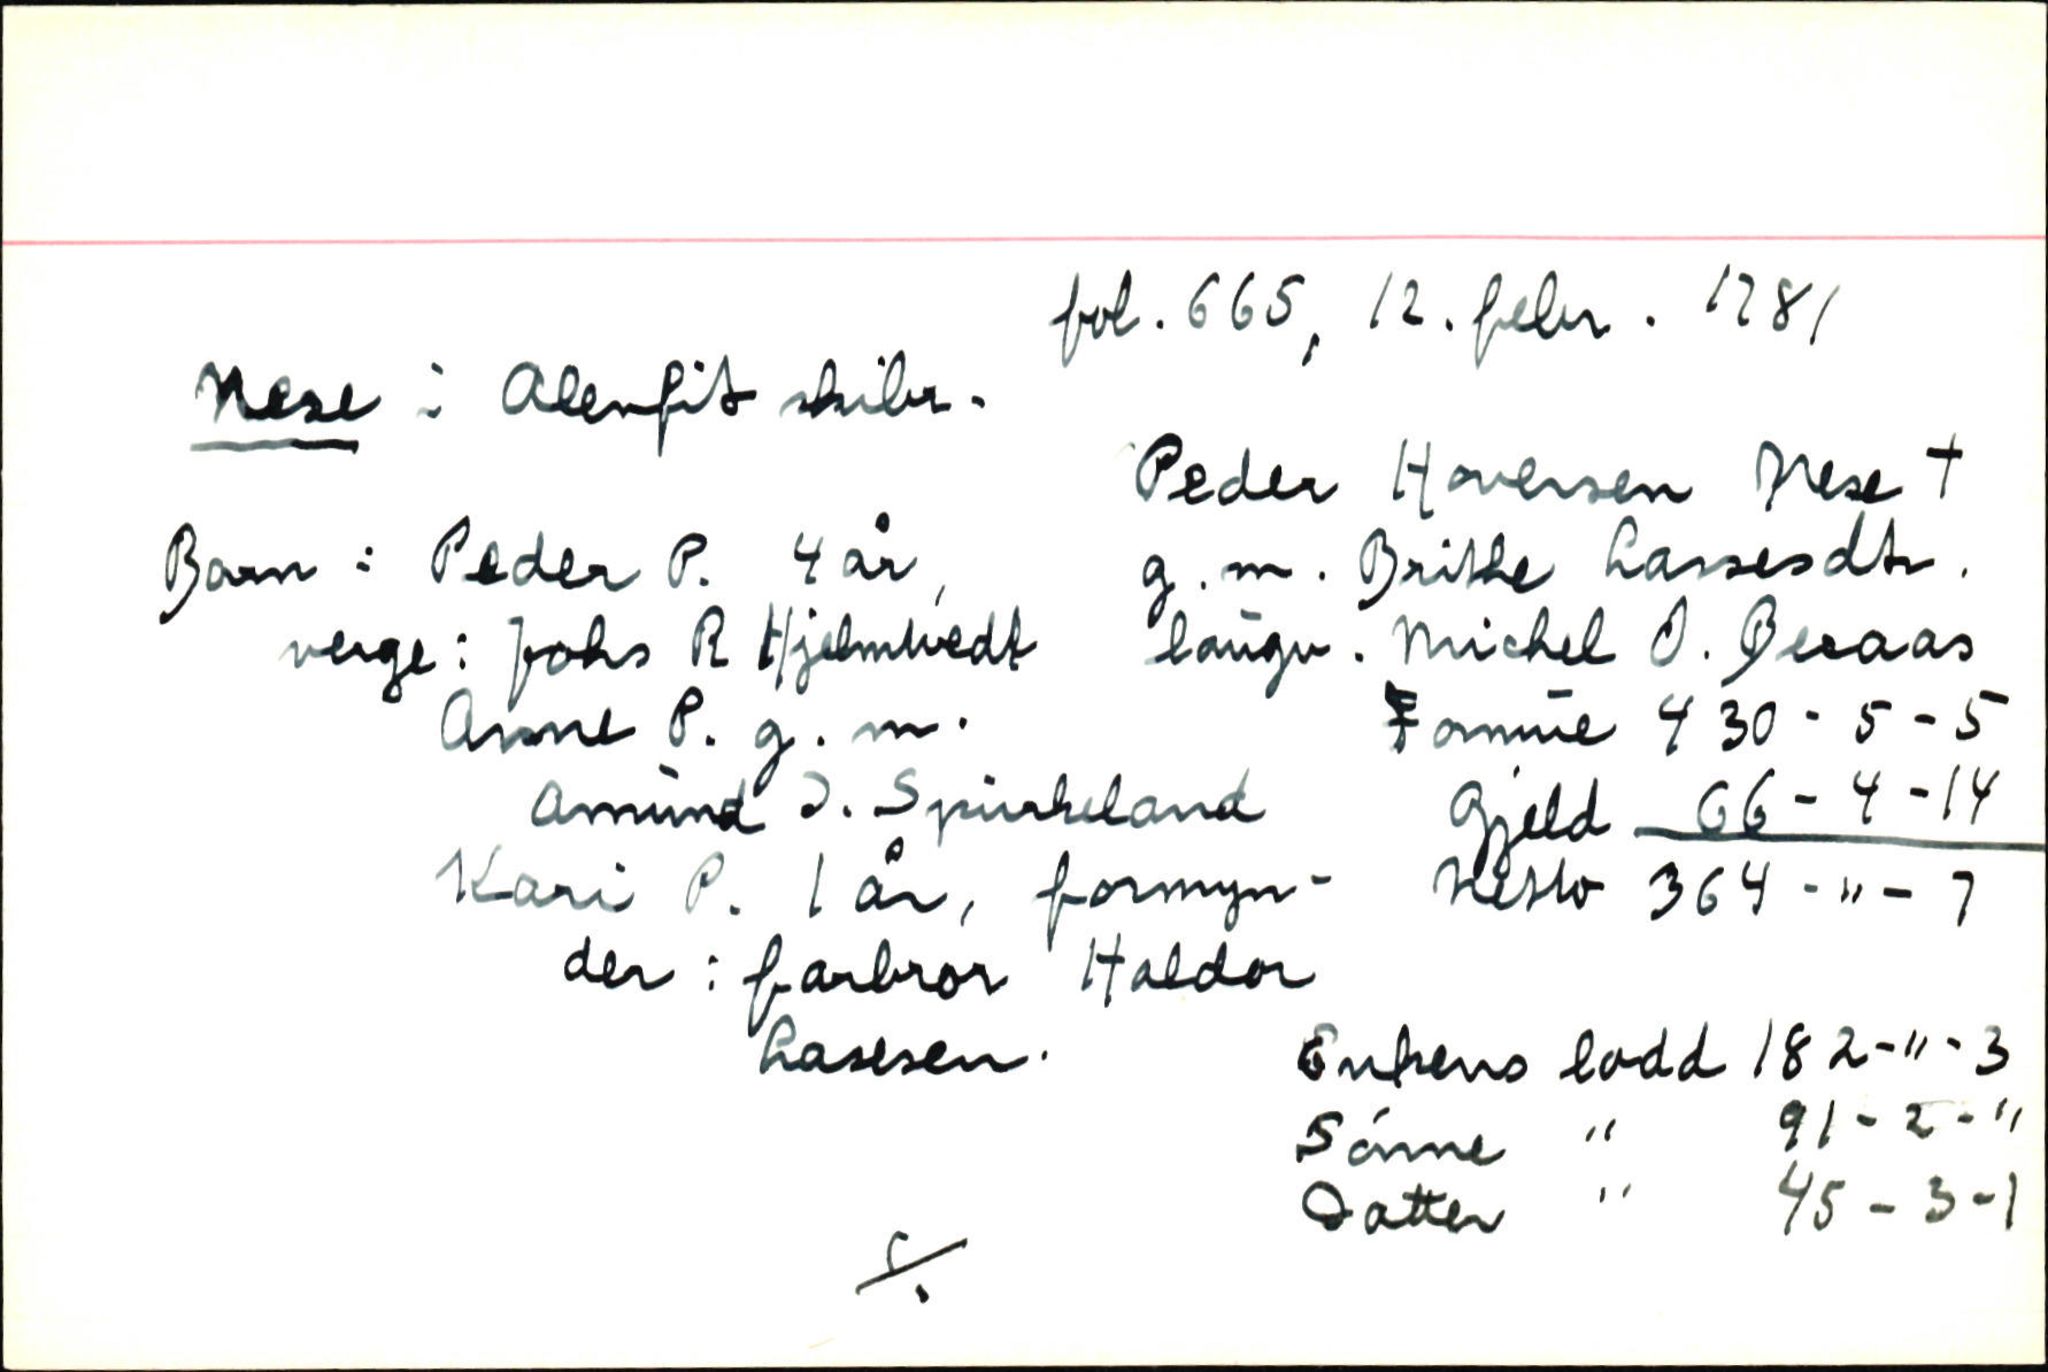 fol. 665, 12. febr. 1781
Nese i Alenfit skibr.
Peder Haversen Nese †
g. m. Brithe Lassesdtr.
laugv. Michel O. Beraas
Formue 430 - 5 - 5
Gjeld 66 - 4 - 14
Netto 364 - " - 7
Barn: Peder P. 4 år,
verge: Johs R Hjelmtvedt
Anne P. g. m.
Amund J. Spurkeland
Kari P. 1 år, formyn-
der: farbror Haldor
Lassesen.
Enkens lodd 182 - " - 3
Sønne " 91 - 2 - "
Datter " 45 - 3 - 1